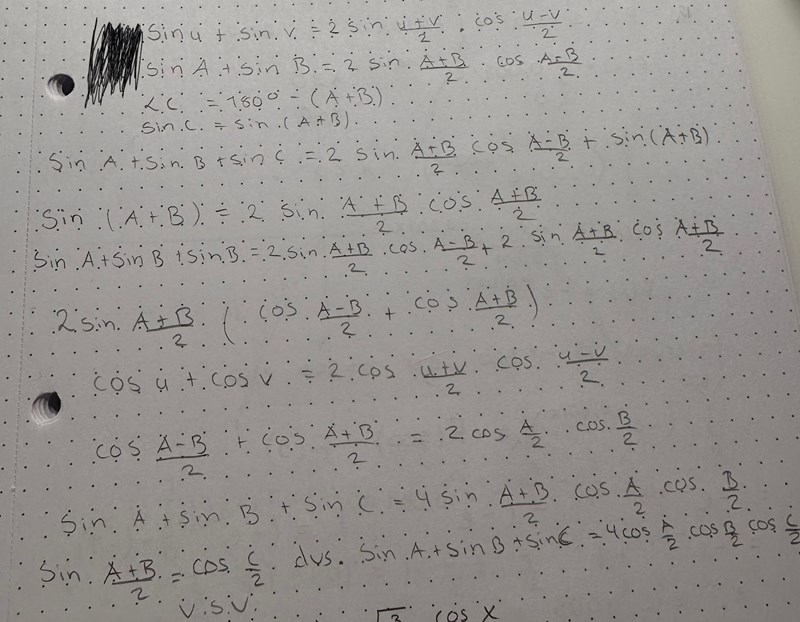 sin u + sin v = 2 sin (u+v)/2 · cos (u-v)/2
sin A + sin B = 2 sin (A+B)/2 · cos (A-B)/2
∠C = 180° - (A+B)
sin C = sin (A+B)
sin A + sin B + sin C = 2 sin (A+B)/2 cos (A-B)/2 + sin (A+B)
sin (A+B) = 2 sin (A+B)/2 cos (A+B)/2
sin A + sin B + sin B = 2 sin (A+B)/2 cos (A-B)/2 + 2 sin (A+B)/2 cos (A+B)/2
2 sin (A+B)/2 (cos (A-B)/2 + cos (A+B)/2)
cos u + cos v = 2 cos (u+v)/2 · cos (u-v)/2
cos (A-B)/2 + cos (A+B)/2 = 2 cos A/2 · cos B/2
sin A + sin B + sin C = 4 sin (A+B)/2 cos A/2 cos B/2
sin (A+B)/2 = cos C/2 dvs. sin A + sin B + sin C = 4 cos A/2 cos B/2 cos C/2
V.S.V.
cos x